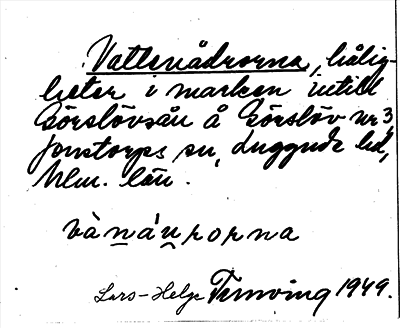 Vattenådrorna, hålig-
heter i marken intill
Görslövsån å Görslöv nr 3,
Jonstorps sn, Luggude hd,
Mlm. län.
vànáụrorna
Lars-Helge Ternving 1949.